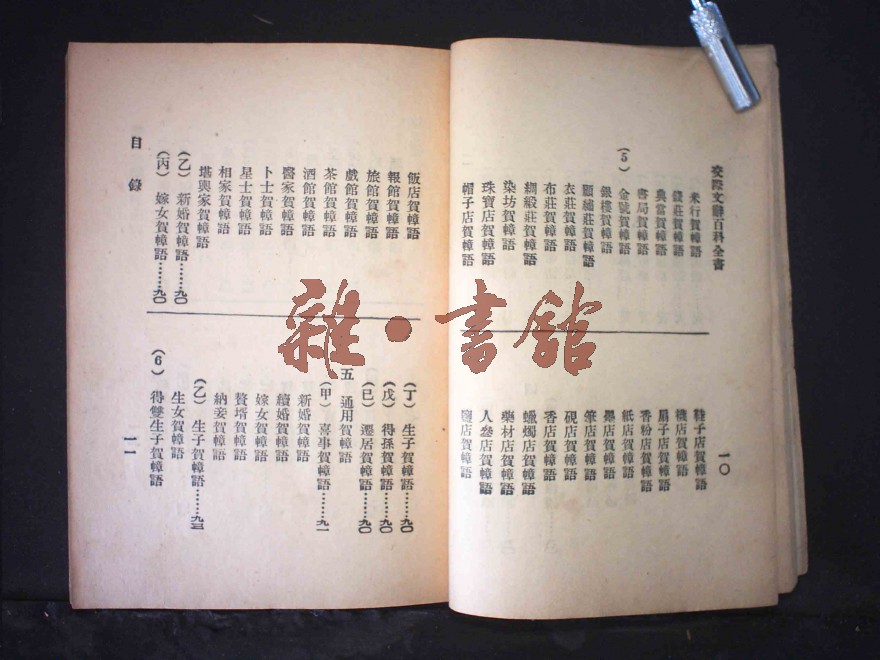 交際文辭百科全書
一〇
米行賀幛語
錢莊賀幛語
典當賀幛語
書局賀幛語
金號賀幛語
(5)
銀樓賀幛語
顧繡莊賀幛語
衣莊賀幛語
布莊賀幛語
綢緞莊賀幛語
染坊賀幛語
珠寶店賀幛語
帽子店賀幛語
鞋子店賀幛語
機店賀幛語
扇子店賀幛語
香粉店賀幛語
紙店賀幛語
墨店賀幛語
筆店賀幛語
硯店賀幛語
香店賀幛語
蠟燭店賀幛語
藥材店賀幛語
人參店賀幛語
鹽店賀幛語
飯店賀幛語
報館賀幛語
旅館賀幛語
戲館賀幛語
茶館賀幛語
酒館賀幛語
醫家賀幛語
卜士賀幛語
星士賀幛語
相家賀幛語
堪輿家賀幛語
(乙) 新婚賀幛語……九〇
(丙) 嫁女賀幛語……九〇
(丁) 生子賀幛語……九〇
(戊) 得孫賀幛語……九〇
(已) 遷居賀幛語……九〇
五 通用賀幛語
(甲) 喜事賀幛語……九一
新婚賀幛語
續婚賀幛語
嫁女賀幛語
贅壻賀幛語
納妾賀幛語
(乙) 生子賀幛語……九三
生女賀幛語
得雙生子賀幛語
(6)
目錄
一一
雜·書館